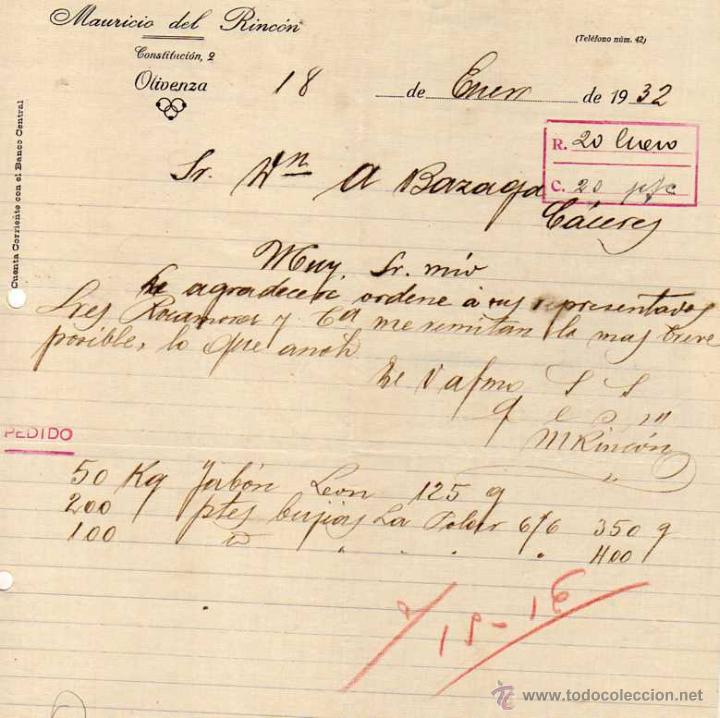 Mauricio del Rincón
Constitución, 2
Olivenza
(Teléfono núm. 42)
18 de Enero de 1932
R. 20 Enero
C. 20 pfc
Sr. Dn A Bazaga
Cáceres
Cuenta Corriente con el Banco Central
Muy Sr. mio
Le agradeceré ordene á sus representados
Sres Rocamora y Cª me remitan lo mas breve
posible, lo que anoto
S S
q e s m
MRincón
PEDIDO
50 Kg Jabón Leon 125 g
200 ptes bujias La Polar 6/6 350 g
100 " " " " 400
15-16
www.todocoleccion.net